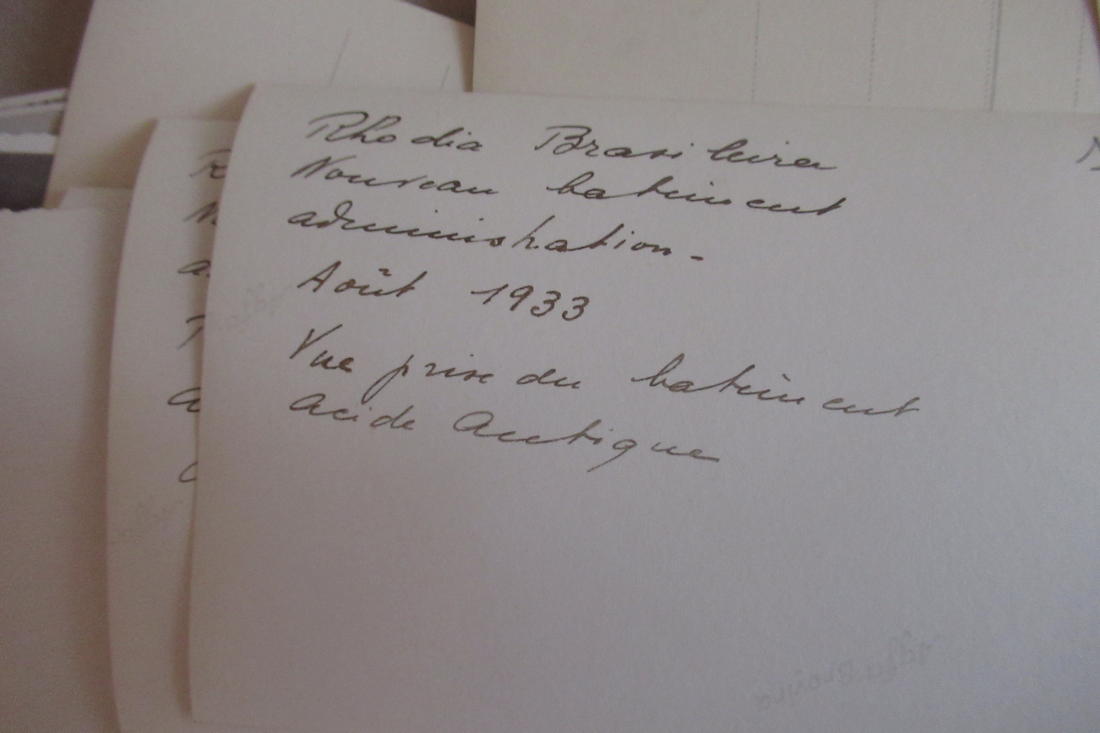 Rhodia Brasileira
Nouveau batiment
administration-
Août 1933
Vue prise du batiment
acide Acetique
Agfa Brovira